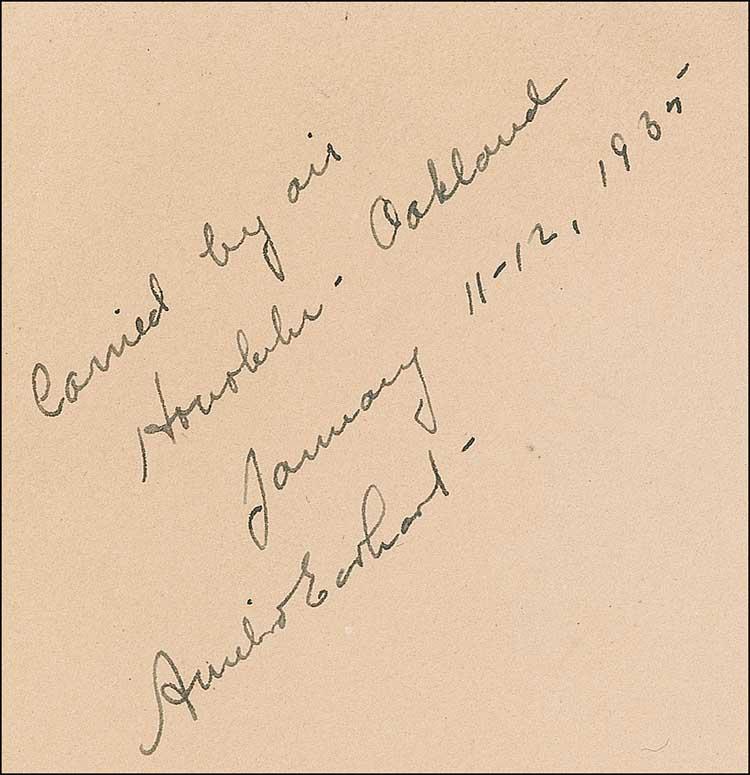 Carried by air
Honolulu - Oakland
January 11-12, 1935
Amelia Earhart -